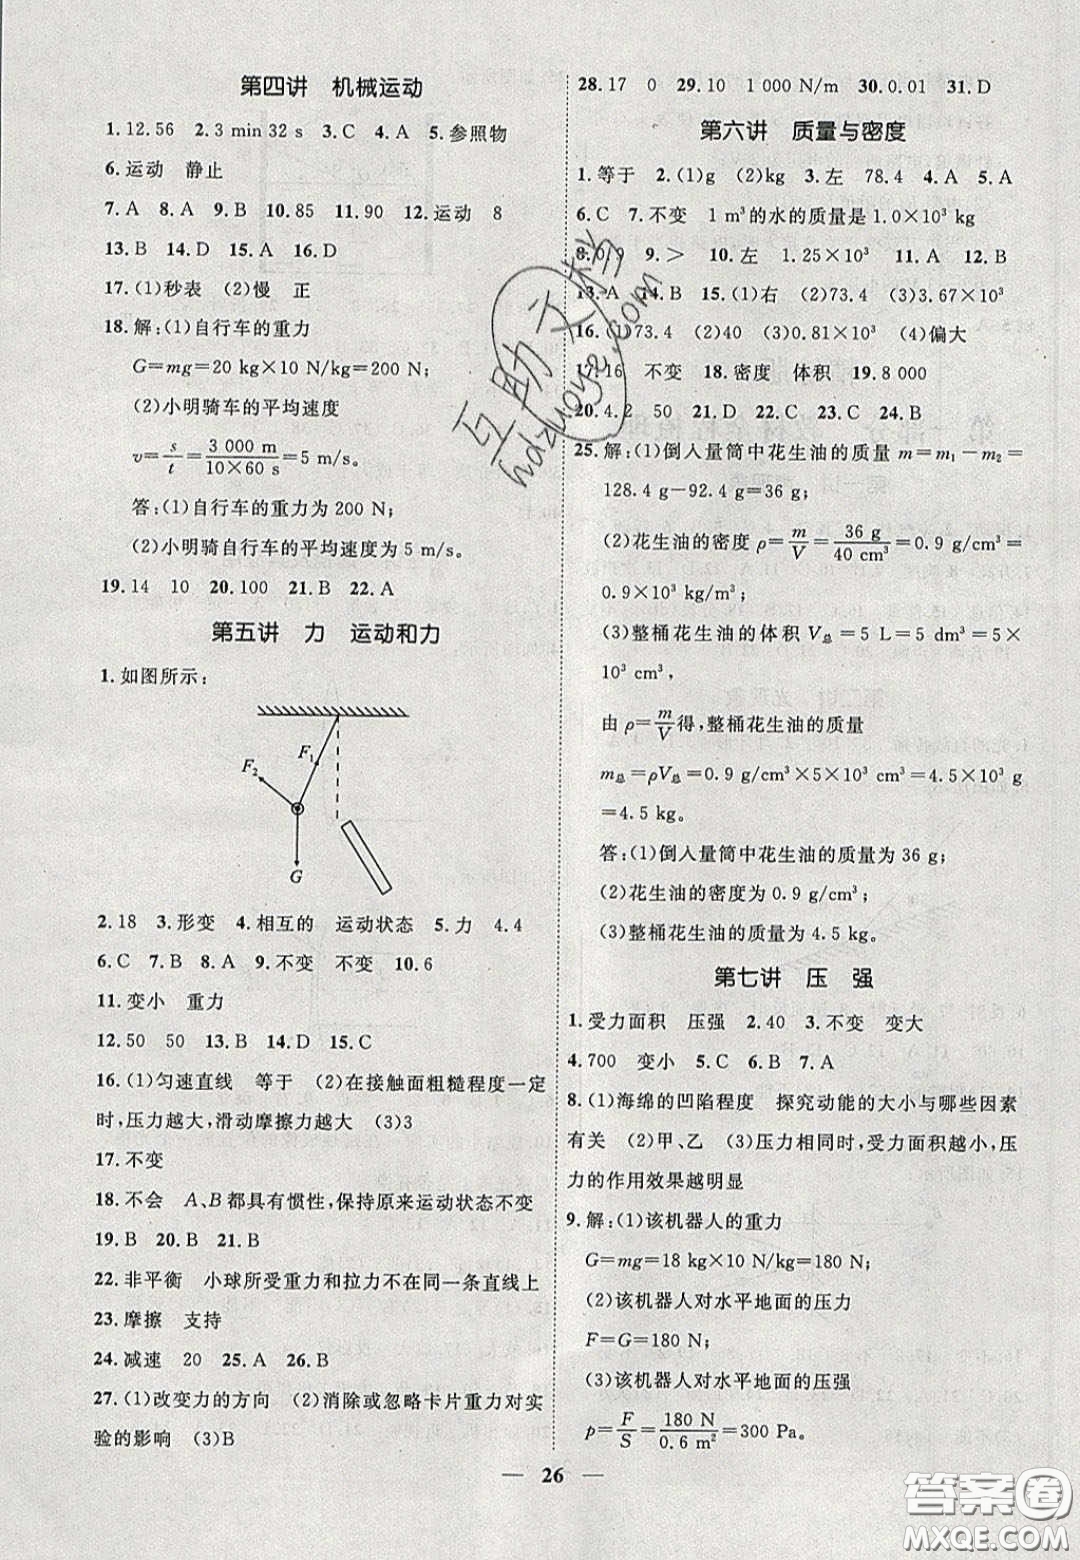 第四讲　机械运动
1.12.56　2.3 min 32 s　3.C　4.A　5.参照物
6.运动　静止
7.A　8.A　9.B　10.85　11.90　12.运动　8
13.B　14.D　15.A　16.D
17.(1)秒表　(2)慢　正
18.解:(1)自行车的重力
G=mg=20 kg×10 N/kg=200 N;
(2)小明骑车的平均速度
v=s/t=3 000 m/10×60 s=5 m/s。
答:(1)自行车的重力为 200 N;
(2)小明骑自行车的平均速度为 5 m/s。
19.14　10　20.100　21.B　22.A
第五讲　力　运动和力
1.如图所示:
F₁
F₂
G
2.18　3.形变　4.相互的　运动状态　5.力　4.4
6.C　7.B　8.A　9.不变　不变　10.6
11.变小　重力
12.50　50　13.B　14.D　15.C
16.(1)匀速直线　等于　(2)在接触面粗糙程度一定
时,压力越大,滑动摩擦力越大　(3)3
17.不变
18.不会　A、B都具有惯性,保持原来运动状态不变
19.B　20.B　21.B
22.非平衡　小球所受重力和拉力不在同一条直线上
23.摩擦　支持
24.减速　20　25.A　26.B
27.(1)改变力的方向　(2)消除或忽略卡片重力对实
验的影响　(3)B
28.17　0　29.10　1 000 N/m　30.0.01　31.D
第六讲　质量与密度
1.等于　2.(1)g　(2)kg　3.左　78.4　4.A　5.A
6.C　7.不变　1 m³的水的质量是1.0×10³ kg
8.0.9　9.>　10.左　1.25×10³　11.A　12.A
13.A　14.B　15.(1)右　(2)73.4　(3)3.67×10³
16.(1)73.4　(2)40　(3)0.81×10³　(4)偏大
17.16　不变　18.密度　体积　19.8 000
20.4.2　50　21.D　22.C　23.C　24.B
25.解:(1)倒人量筒中花生油的质量 m=m₁-m₂=
128.4 g-92.4 g=36 g;
(2)花生油的密度 ρ=m/V=36 g/40 cm³=0.9 g/cm³=
0.9×10³ kg/m³;
(3)整桶花生油的体积 V总=5 L=5 dm³=5×
10³ cm³,
由 ρ=m/V得,整桶花生油的质量
m总=ρV总=0.9 g/cm³×5×10³ cm³=4.5×10³ g
=4.5 kg。
答:(1)倒人量筒中花生油的质量为 36 g;
(2)花生油的密度为 0.9 g/cm³;
(3)整桶花生油的质量为 4.5 kg。
第七讲　压　强
1.受力面积　压强　2.40　3.不变　变大
4.700　变小　5.C　6.B　7.A
8.(1)海绵的凹陷程度　探究动能的大小与哪些因素
有关　(2)甲、乙　(3)压力相同时,受力面积越小,压
力的作用效果越明显
9.解:(1)该机器人的重力
G=mg=18 kg×10 N/kg=180 N;
(2)该机器人对水平地面的压力
F=G=180 N;
(3)该机器人对水平地面的压强
p=F/S=180 N/0.6 m²=300 Pa。
— 26 —
互助文档
hdzuoye.com
答案圈
MXQE.COM